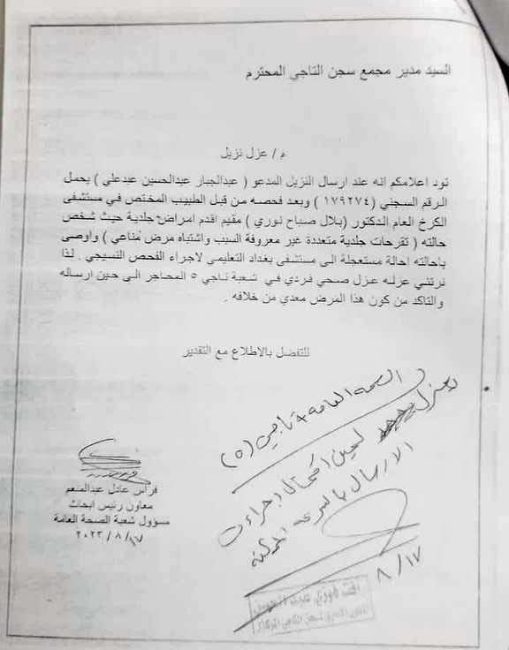 السيد مدير مجمع سجن التاجي المحترم
م / عزل نزيل
نود اعلامكم انه عند ارسال النزيل المدعو ( عبدالجبار عبدالحسين عبدعلي ) يحمل
الرقم السجني ( ١٧٩٢٧٤ ) وبعد فحصه من قبل الطبيب المختص في مستشفى
الكرخ العام الدكتور (بلال صباح نوري ) مقيم اقدم امراض جلدية حيث شخص
حالته ( تقرحات جلدية متعددة غير معروفة السبب واشتباه مرض مناعي ) واوصى
باحالته احالة مستعجلة الى مستشفى بغداد التعليمي لاجراء الفحص النسيجي . لذا
نرتئي عزله عزل صحي فردي في شعبة تاجي ٥ المحاجر الى حين ارساله
والتاكد من كون هذا المرض معدي من خلافه .
للتفضل بالاطلاع مع التقدير
الصحة العامة + تاجي (٥)
يعزل لحين اكمال اجراءات
الارسال بالسرعة الممكنة
٨/١٧
فراس عادل عبدالمنعم
معاون رئيس ابحاث
مسؤول شعبة الصحة العامة
٢٠٢٣ / ٨ / ١٧